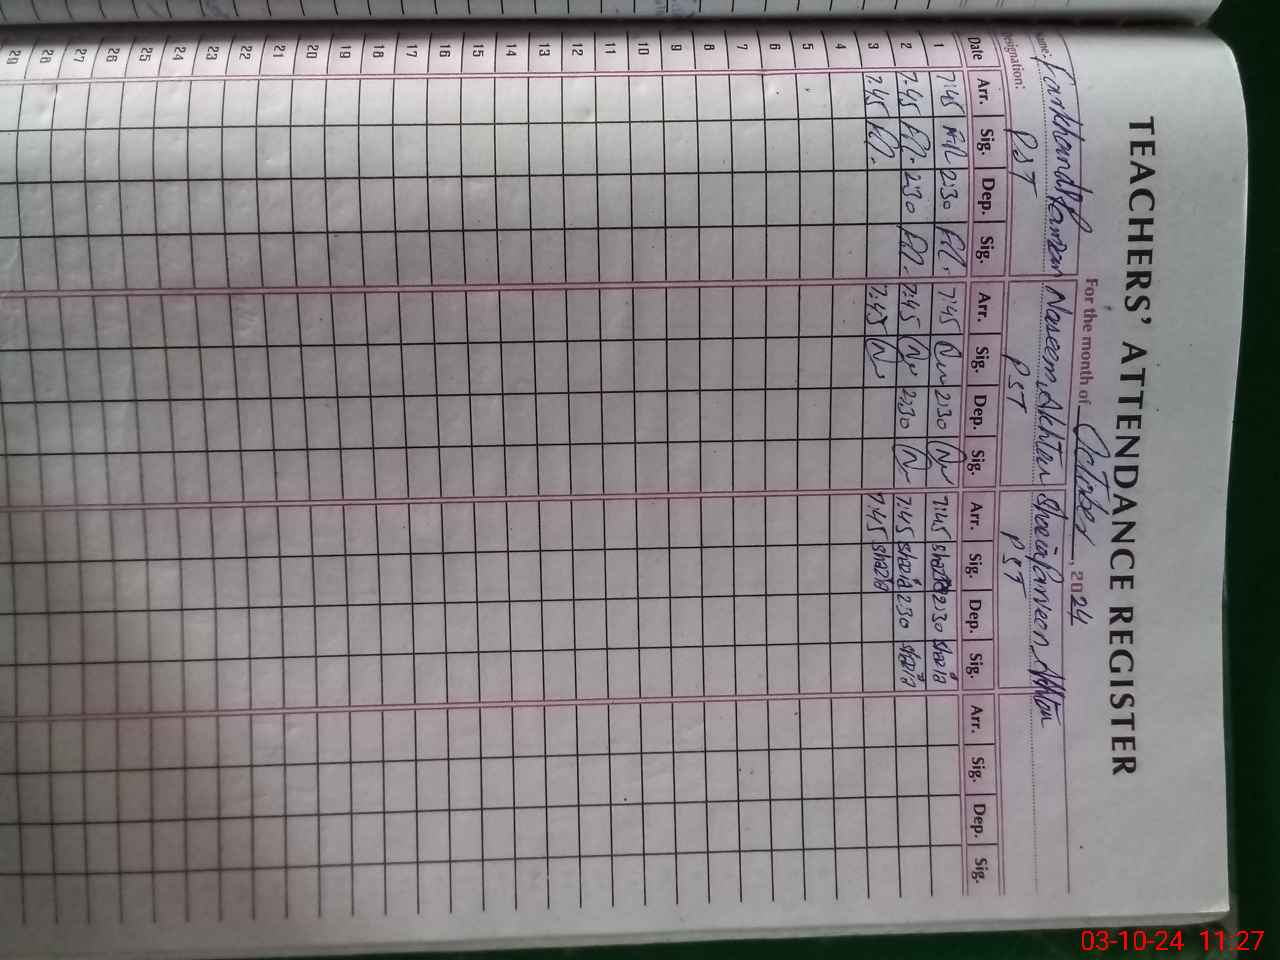 TEACHERS' ATTENDANCE REGISTER
For the month of October, 2024
Name: Naseem Akhtar
Designation: PST PST PST
Date Arr. Sig. Dep. Sig. Arr. Sig. Dep. Sig. Arr. Sig. Dep. Sig. Arr. Sig. Dep. Sig.
1 7:45 2:30 7:45 2:30 7:45 Shazia 2:30 Shazia
2 7:45 2:30 7:45 2:30 7:45 Shazia 2:30 Shazia
3 7:45 7:45 7:45 Shazia
4
5
6
7
8
9
10
11
12
13
14
15
16
17
18
19
20
21
22
23
24
25
26
27
28
29
03-10-24 11:27